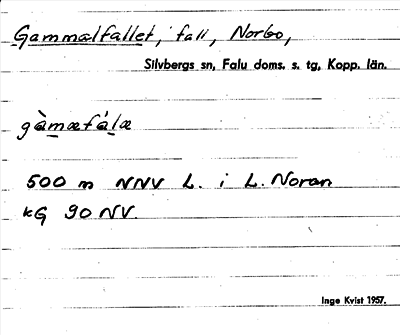 Gammalfallet, fall, Norbo,
Silvbergs sn, Falu doms. s. tg, Kopp. län.
gàmæfálæ
500 m NNV L. i L. Noran
kG 90 NV.
Inge Kvist 1957.